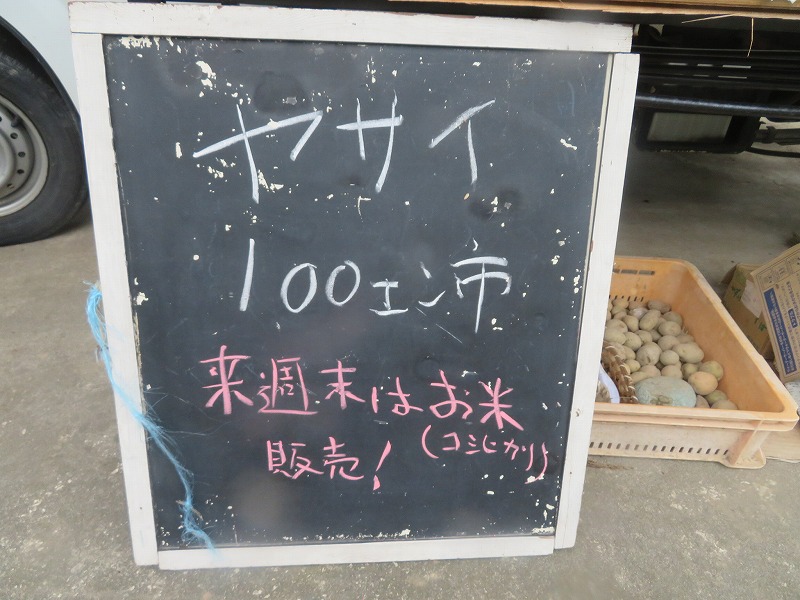 ヤサイ
100エン市
来週末はお米
(コシヒカリ)
販売!